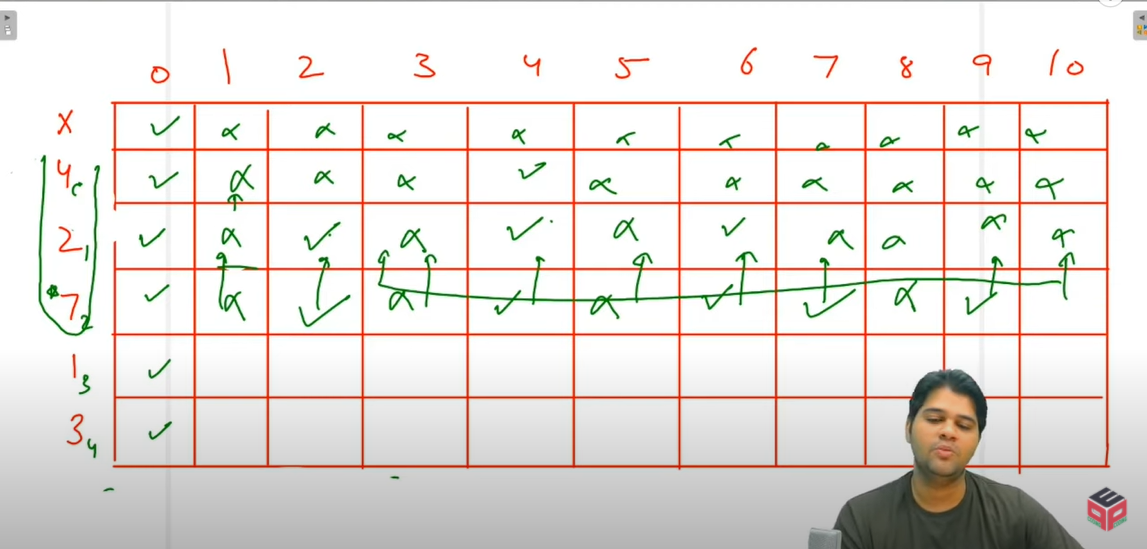 0 1 2 3 4 5 6 7 8 9 10
x ✓ α α α α α α α α α α
4 ✓ α α α ✓ α α α α α α
2 1 ✓ α ✓ α ✓ α ✓ α α α α
7 2 ✓ α ✓ α ✓ α ✓ ✓ α ✓
1 3 ✓
3 4 ✓